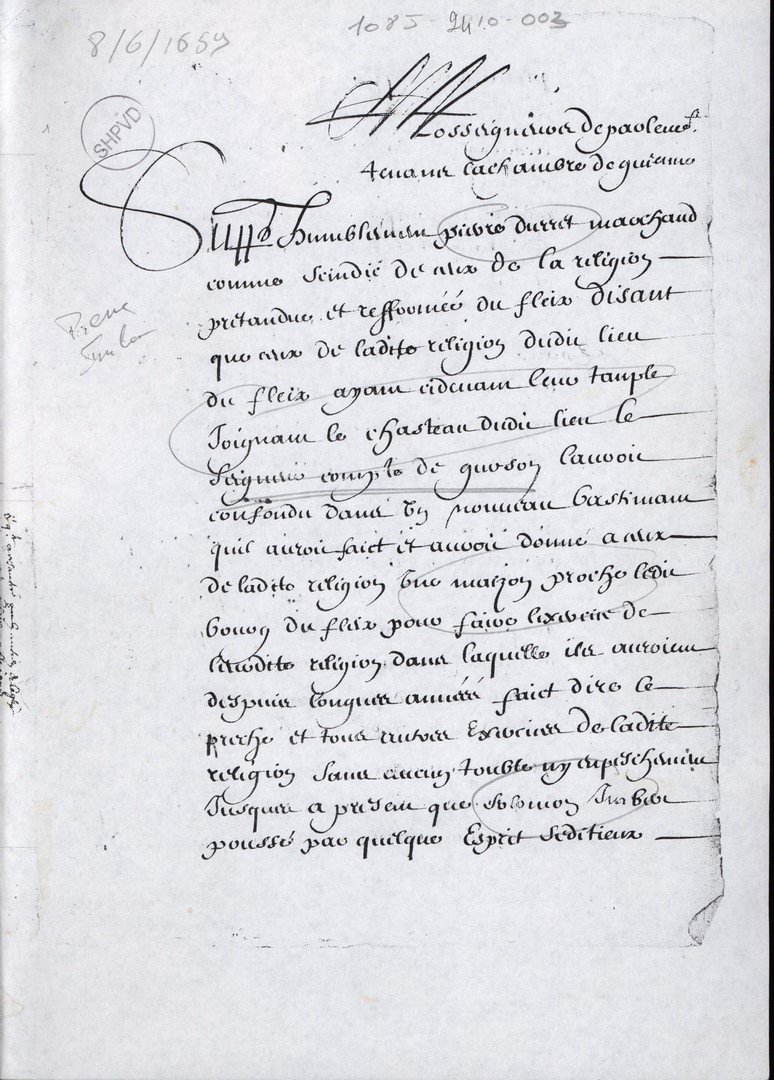 1085-2410-003
8/6/1659
SHPVD
Nosseigneurs de parlemt.
tenans la chambre de guienne
Supp. humblemen pierre durret marchand
comme scindic de ceux de la religion
prétandue et refformée du fleix disant
que ceux de laditte religion dudit lieu
du fleix ayant cidevant leur temple
Joignant le chasteau dudit lieu le
seigneur compte de gurson lauroit
confondu dans un nouveau bastimant
quil auroit faict et auroit donné a ceux
de laditte religion une maison proche ledit
bourg du fleix pour faire lexercice de
leurditte religion dans laquelle ils auroient
despuis longues années faict dire le
preche et tous autres Exercices de ladite
religion sans aucun trouble ny enpeschemen
Jusques a presen que solomon Imber
poussé par quelque Esprit seditieux